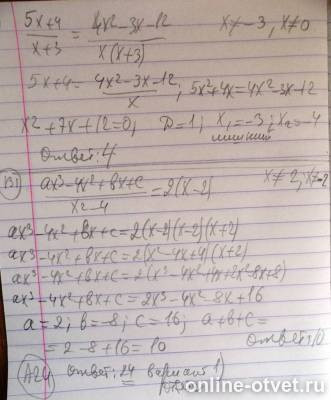 (5x+4)/(x+3) = (4x²-3x-12)/(x(x+3))   x≠-3, x≠0
5x+4= (4x²-3x-12)/x ; 5x²+4x=4x²-3x-12
x²+7x+12=0; D=1; x₁=-3; x₂=-4
лишний
Ответ: 4
В1 (ax³-4x²+вx+c)/(x²-4) =2(x-2)   x≠2, x≠-2
ax³-4x²+вx+c=2(x-2)(x-2)(x+2)
ax³-4x²+вx+c=2(x²-4x+4)(x+2)
ax³-4x²+вx+c=2(x³-4x²+4x+2x²-8x+8)
ax³-4x²+вx+c=2x³-4x²-8x+16
a=2; в=-8; c=16; a+в+c=
=2-8+16=10   Ответ: 10
A24 ответ: 24 вариант 1)
online-otvet.ru